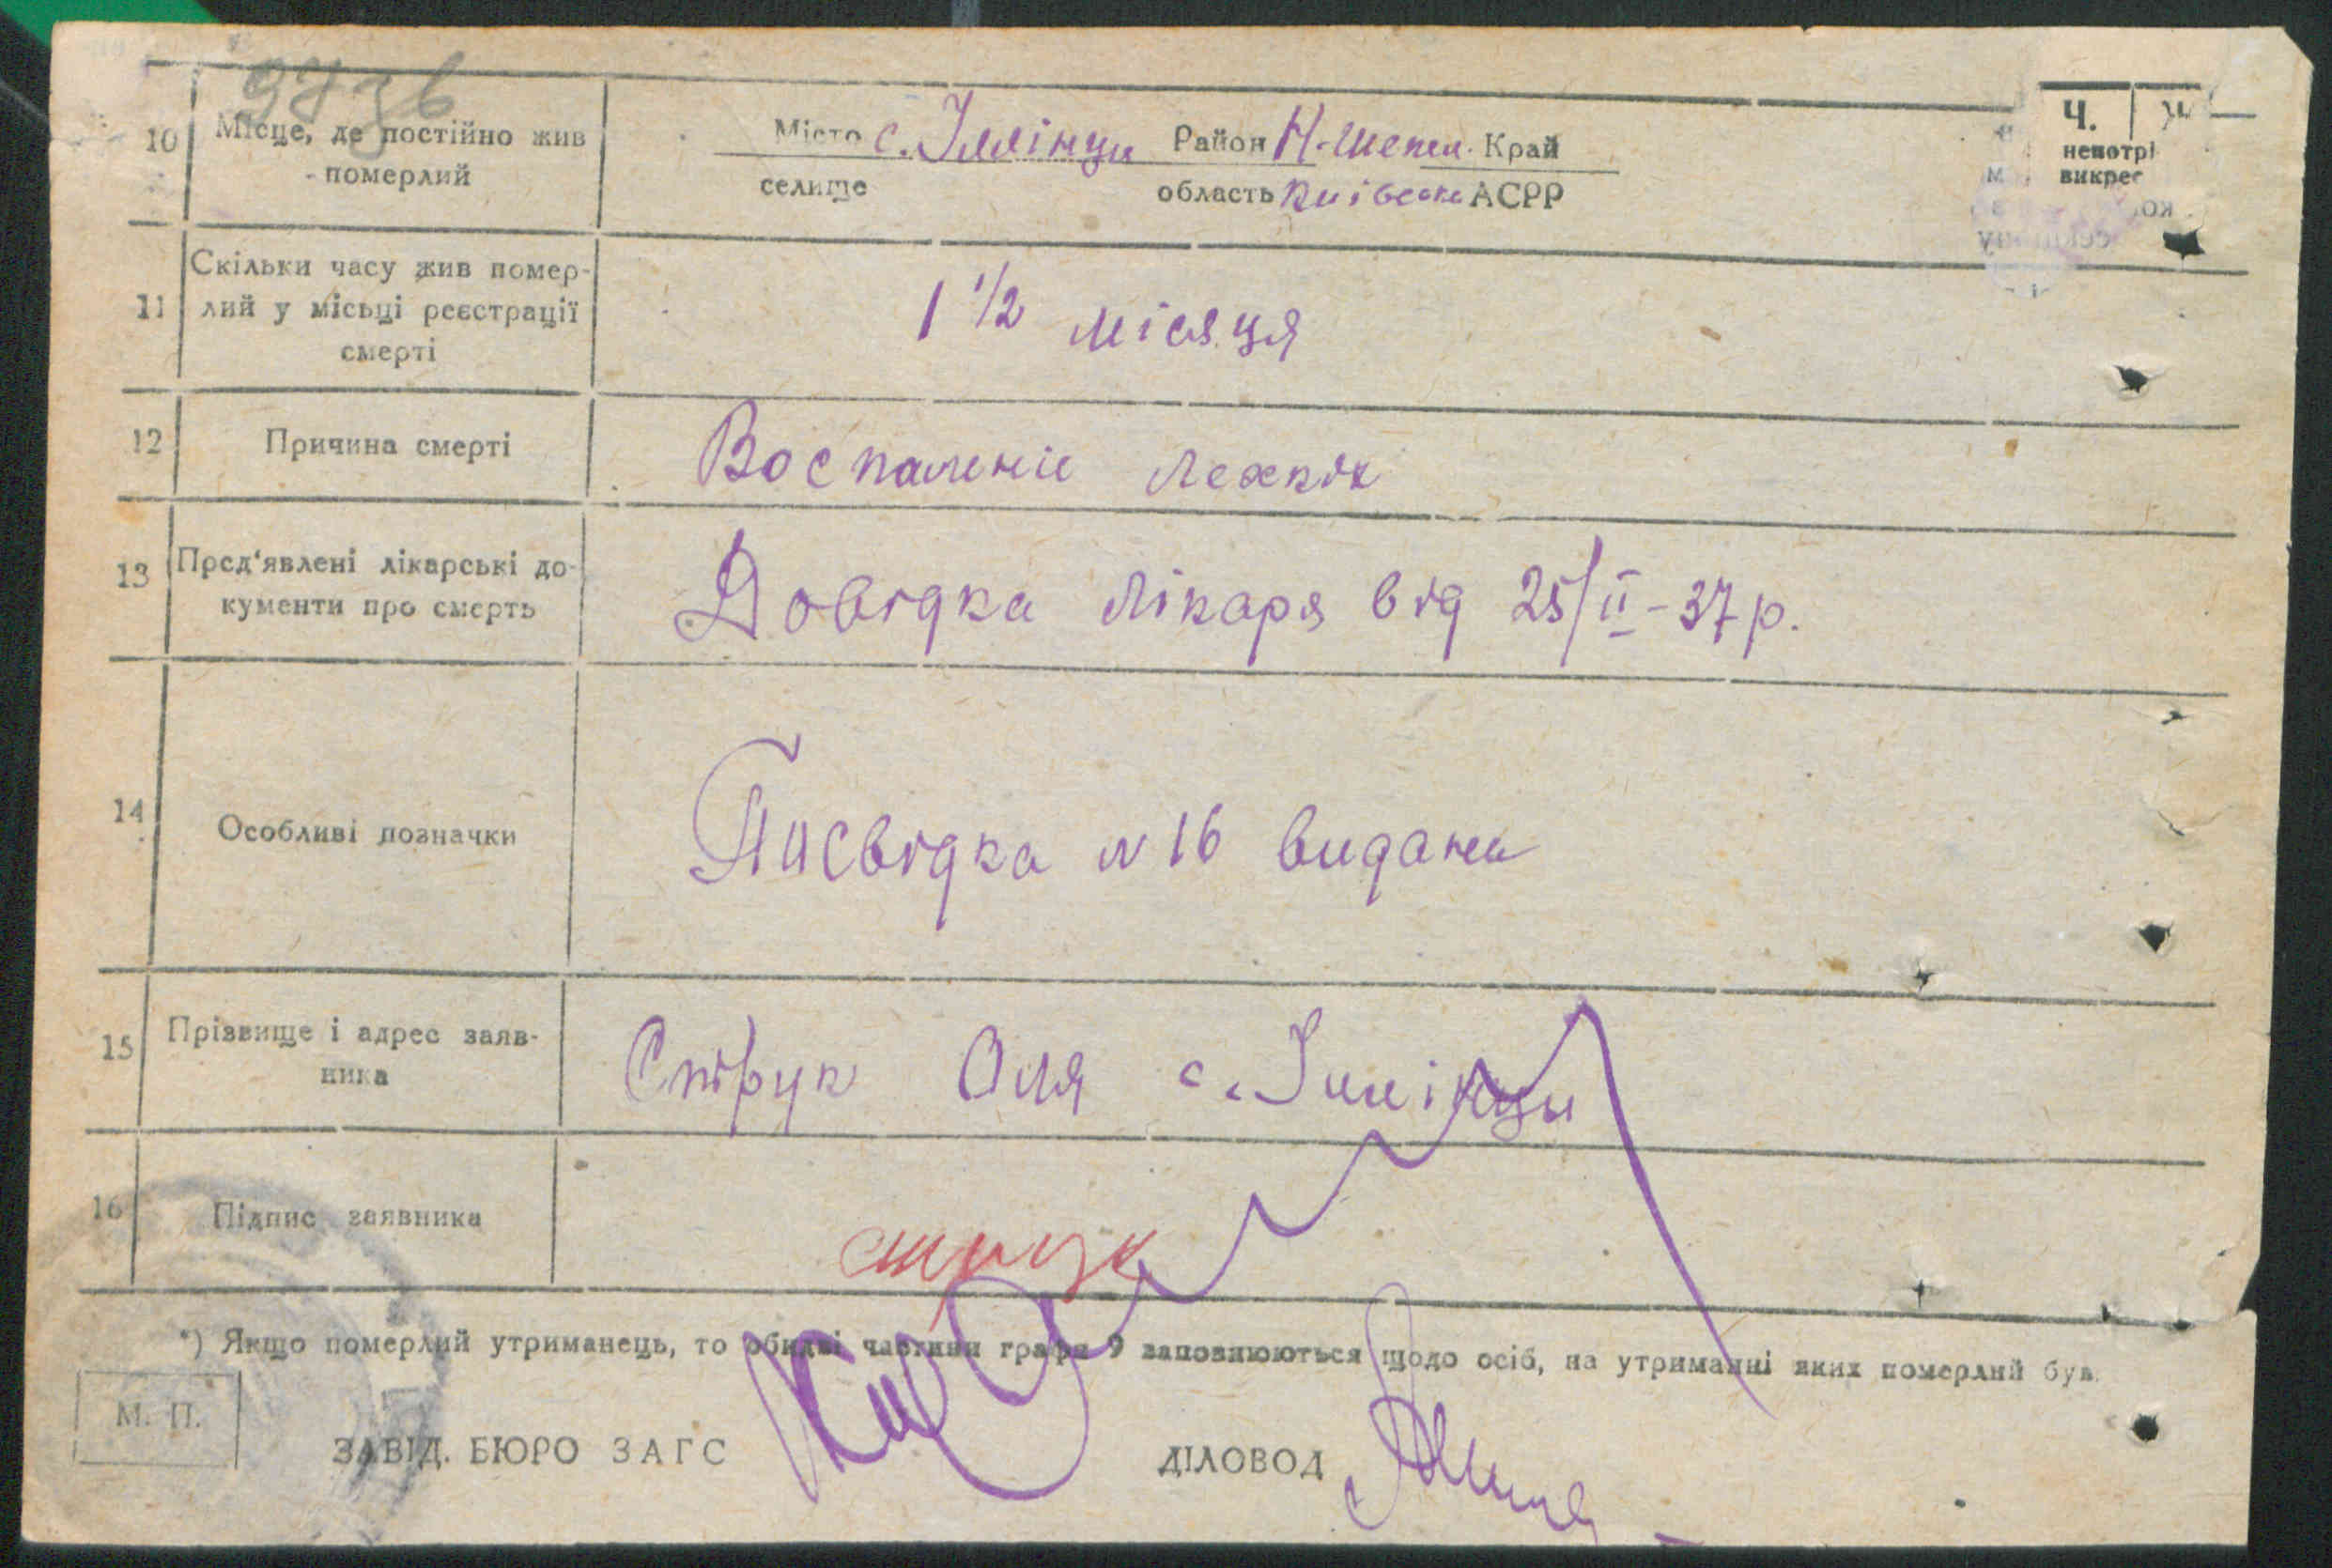 10 Місце, де постійно жив
померлий
Місто с. Іллінци Район Н-Шепел. Край
селище область Київська АСРР
Ч.
непотрі
викрес
11 Скільки часу жив помер-
лий у місьці реєстрації
смерті
1 1/2 місяця
12 Причина смерті
Воспаленіе Лехкіх
13 Пред'явлені лікарські до-
кументи про смерть
Довідка Лікаря від 25/II-37 р.
14 Особливі позначки
Посвідка N 16 видана
15 Прізвище і адрес заяв-
ника
Струк Оля с. Іллінци
16 Підпис заявника
струк
*) Якщо померлий утриманець, то обидві частини графи 9 заповнюються щодо осіб, на утриманні яких померлий був.
М. П.
ЗАВІД. БЮРО ЗАГС ДІЛОВОД